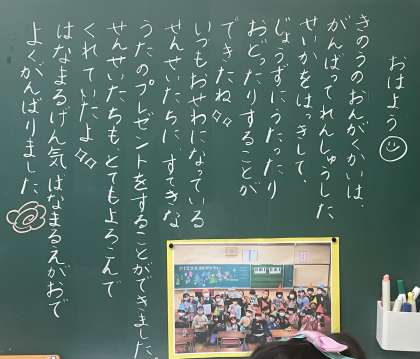 おはよう☺
きのうのおんがくかいは、
がんばってれんしゅうした
せいかをはっきして、
じょうずにうたったり
おどったりすることが
できたね✧✧
いつもおせわになっている
せんせいたちに、すてきな
うたのプレゼントをすることができました。
せんせいたちも、とてもよろこんで
くれていたよ✧✧
はなまるげん気、はなまるえがおで
よくがんばりました